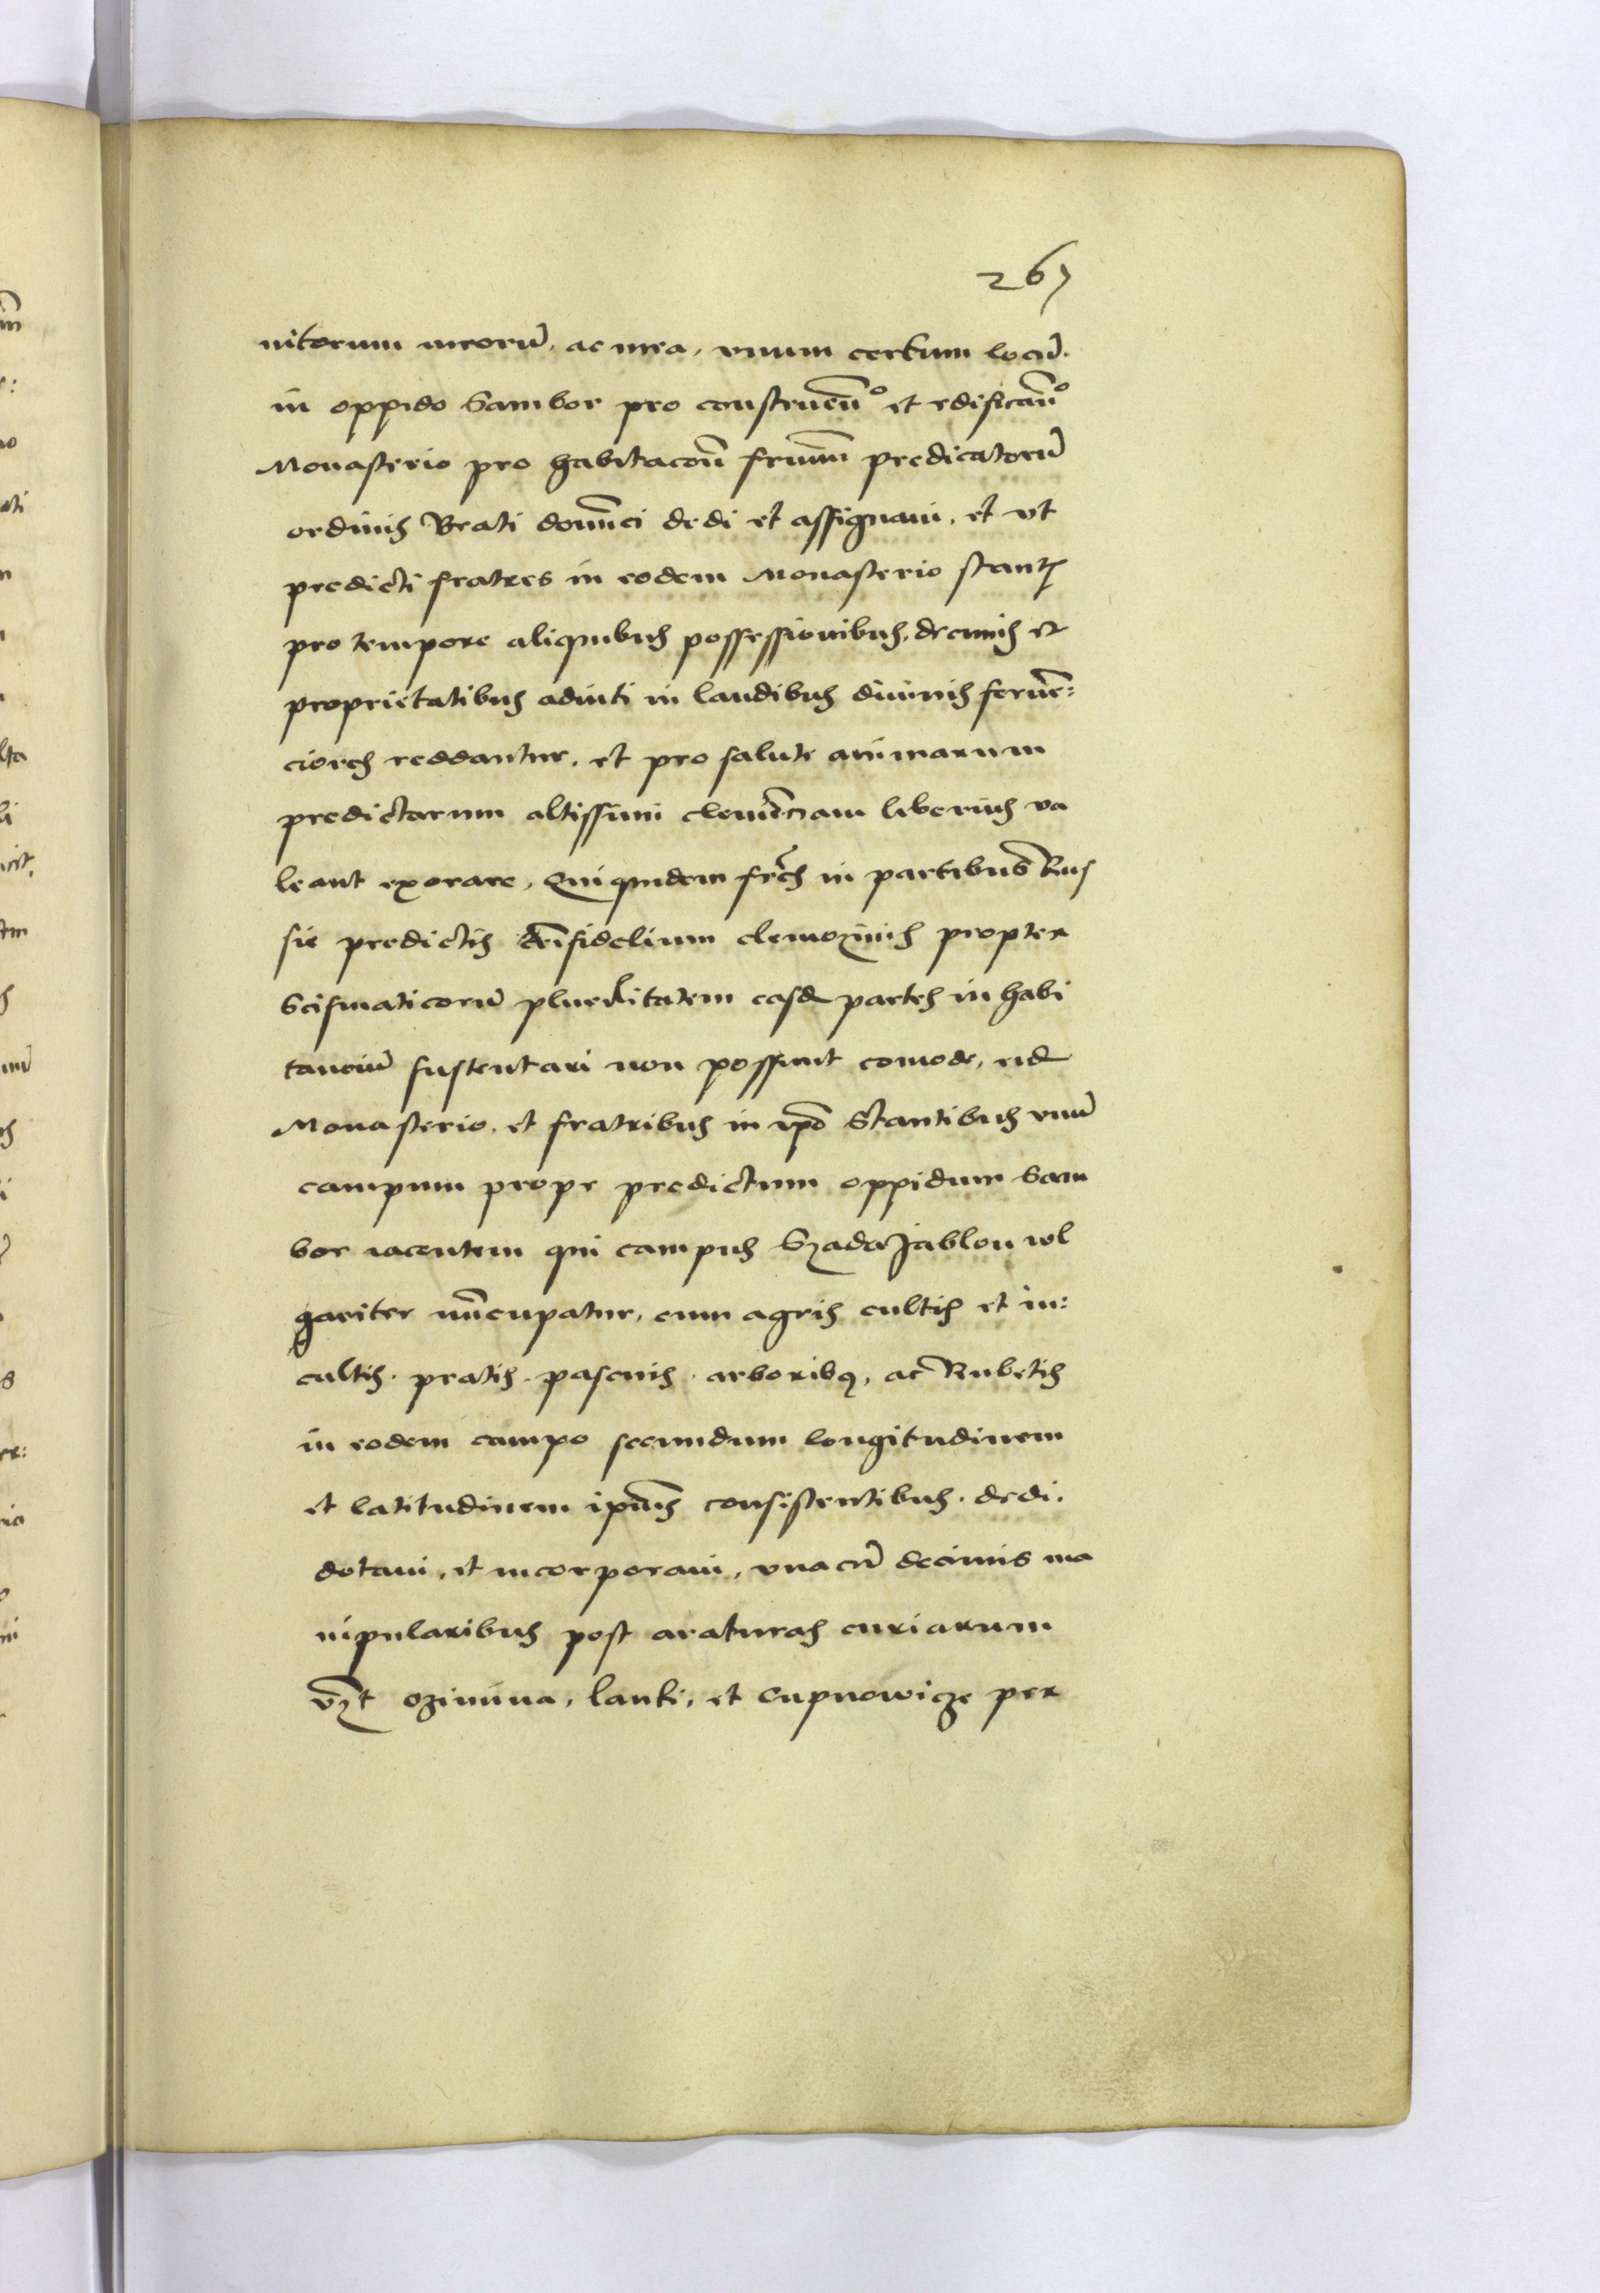 267
nitorum meorũ, ac mea, vnum certum locũ.
in oppido Sambor pro construeñº et edificañº
Monasterio pro habitacoñ frm̃ predicatorũ
ordinis Beati domĩci dedi et assignaui, et vt
predicti fratres in eodem Monasterio stantes
pro tempore aliquibus possessionibus, decimis et
proprietatibus adiuti in laudibus diuinis feruẽ:
ciores reddantur, et pro salute animarum
predictarum altissimi clemẽciam liberius va
leant exorare, Qui quidem frẽs in partibus Rus
sie predictis xp̃ifidelium elemozinis propter
Scismaticorũ pluralitatem easd partes in habi
tanciũ sustentari non possunt comode, eid
Monasterio, et fratribus in ip̃o Stantibus vnũ
campum prope predictum oppidum Sam
bor iacentem qui campus Szada Jablon wl
gariter nũcupatur, cum agris cultis et in:
cultis. pratis. pascuis. arboribꝫ, ac Rubetis
in eodem campo secundum longitudinem
et latitudinem ip̃ius consistentibus. dedi.
dotaui, et incorporaui, vnacũ decimis ma
nipularibus post araturas curiarum
vꝫt ozimina, lanki, et Cupnowicze per